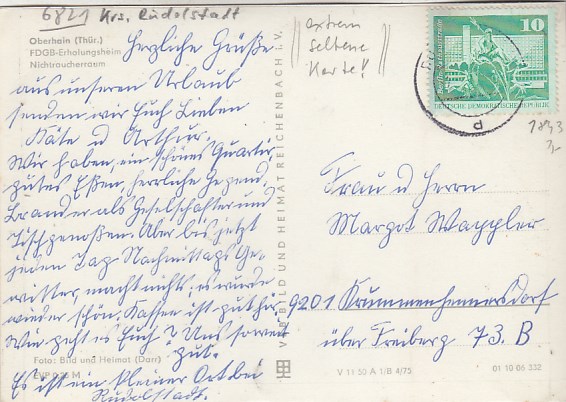 6821 Krs. Rudolstadt
Oberhain (Thür.)
FDGB-Erholungsheim
Nichtraucherraum
Herzliche Grüße
aus unseren Urlaub
senden wir Euch Lieben
Käte u Arthur.
Wir haben, ein schönes Quartier,
gutes Eßen, herrliche Gegend,
als Geselschafter und
Tischgenoßen. Aber bis jetzt
jeden Tag Nachmittags Ge-
witter, macht nichts, es wurde
wieder schön. Kaffee ist gut hier,
Wie geht es Euch? Uns soweit
gut.
Foto: Bild und Heimat (Darr)
EVP 0,20 M
Es ist ein kleiner Ort bei
Rudolstadt.
VEB BILD UND HEIMAT REICHENBACH I. V.
extrem
seltene
Karte!!
10
DEUTSCHE DEMOKRATISCHE REPUBLIK
d
Frau u Herrn
Margot Wappler
9201 Krummenhennersdorf
über Freiberg 73. B
V 11 50 A 1/B 4/75
01 10 06 332